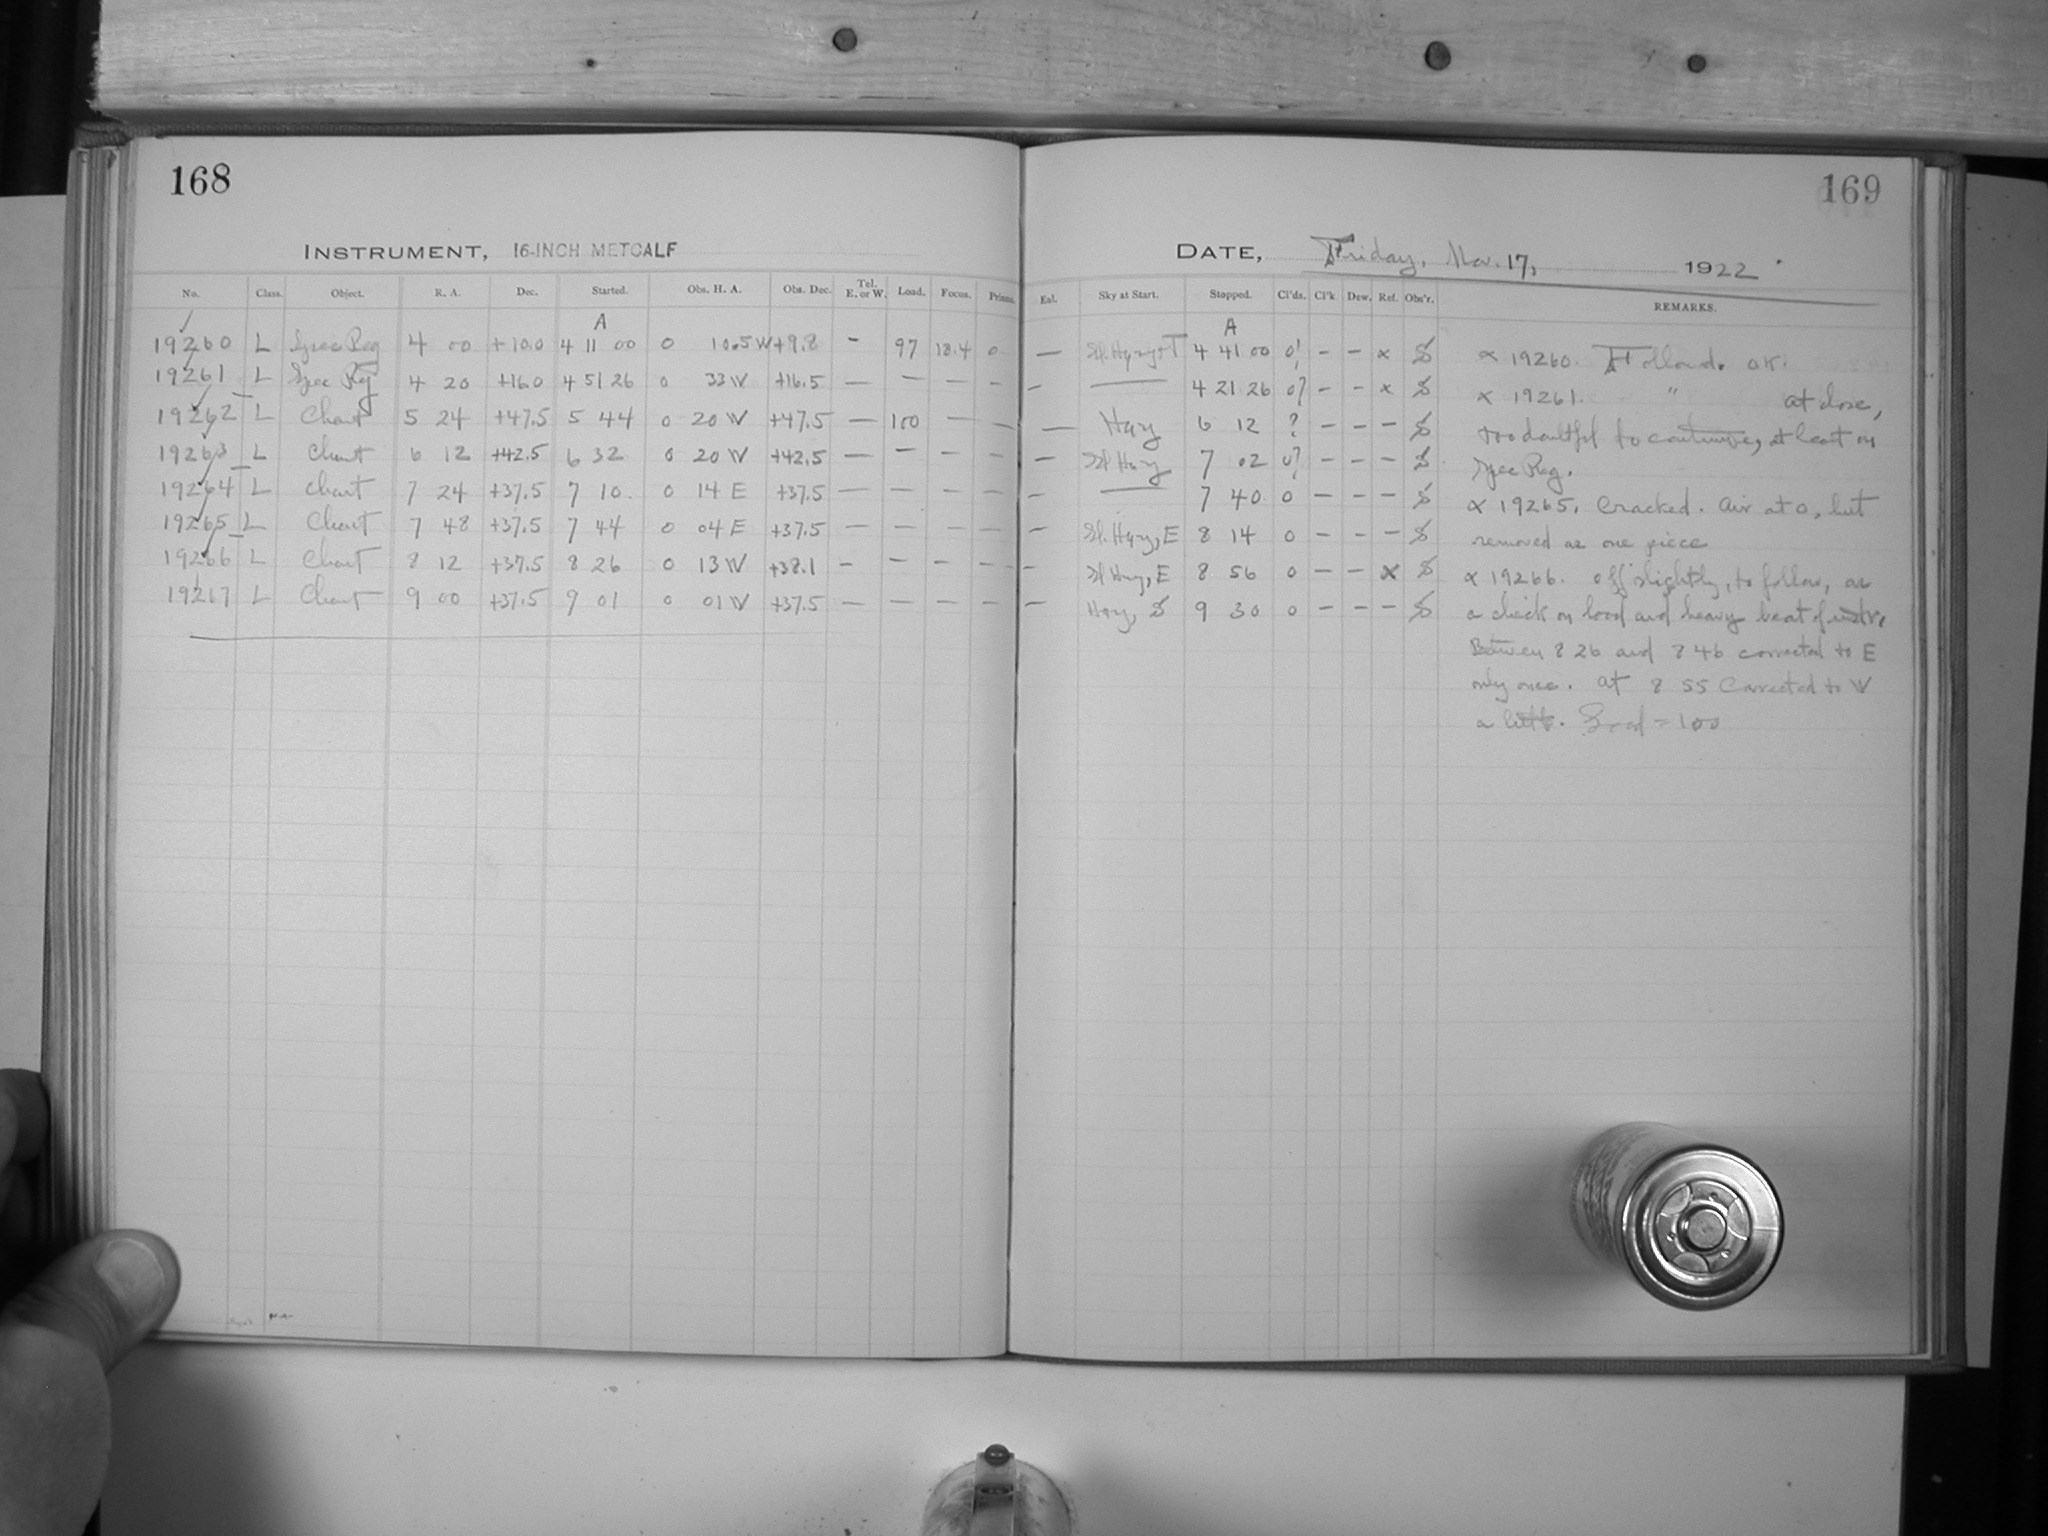 168
169
INSTRUMENT, 16-INCH METCALF
DATE, Friday, Nov. 17, 1922
No. Class. Object. R. A. Dec. Started. Obs. H. A. Obs. Dec. Tel. E. or W. Load. Focus. Prisms. Eal. Sky at Start. Stopped. Cl'ds. Cl'k Dew. Ref. Obs'r. REMARKS.
A A
19260 L Spec Reg 4 00 +10.0 4 11 00 0 10.5 W +9.8 — 97 13.4 0 — 4 41 00 0! — — x α 19260. Followed. OK.
19261 L Spec Reg 4 20 +16.0 4 51 26 0 33 W +16.5 — — — — — — 4 21 26 0? — — x α 19261. " at close,
19262 L Chart 5 24 +47.5 5 44 0 20 W +47.5 — 100 — — — Hazy 6 12 ? — — — too doubtful to continue, at least on
19263 L Chart 6 12 +42.5 6 32 0 20 W +42.5 — — — — — Sl. Hazy 7 02 0? — — — Spec Reg.
19264 L Chart 7 24 +37.5 7 10 0 14 E +37.5 — — — — — — 7 40 0 — — — α 19265. Cracked. Air at 0, but
19265 L Chart 7 48 +37.5 7 44 0 04 E +37.5 — — — — — Sl. Hazy, E 8 14 0 — — — removed as one piece
19266 L Chart 8 12 +37.5 8 26 0 13 W +38.1 — — — — — Sl Hazy, E 8 56 0 — — x α 19266. Off slightly, to follow, as
19267 L Chart 9 00 +37.5 9 01 0 01 W +37.5 — — — — — Hazy, 9 30 0 — — — a check on load and heavy beat of instr.
Between 8 26 and 8 46 corrected to E
only once. At 8 55 Corrected to W
a little. Load = 100